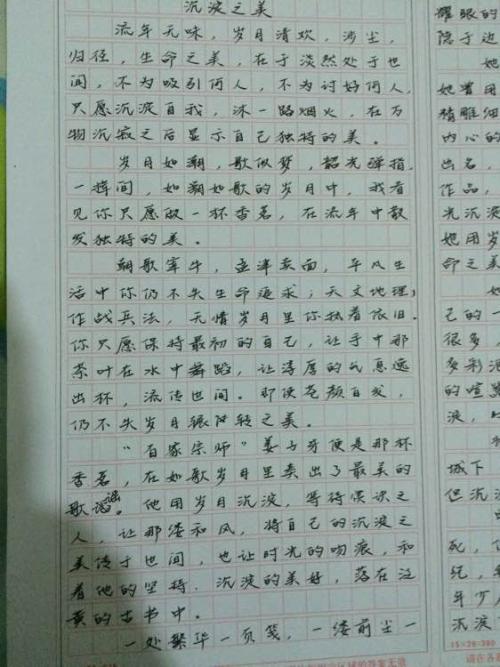 沉淀之美
流年无味，岁月清欢，涉尘，
归径，生命之美，在于淡然处于世
间，不为吸引何人，不为讨好何人，
只愿沉淀自我，沐一路烟火，在万
物沉寂之后显示自己独特的美。
岁月如朔，歌似梦，韶光弹指
一挥间，如朔如歌的岁月中，我看
见你只愿做一杯香茗，在流年中散
发独特的美。
朝歌宰牛，孟津卖面，平凡生
活中你仍不失生命追求；天文地理，
作战兵法，无情岁月里你执着依旧。
你只愿保持最初的自己，让手中那
茶叶在水中舞蹈，让淳厚的气息逸
出杯，流传世间。即使苍颜白发，
仍不失岁月辗转之美。
“百家宗师”姜子牙便是那杯
香茗，在如歌岁月里卖出了最美的
歌谣。他用岁月沉淀，等待懂识之
人，让那缕和风，将自己的沉淀之
美传于世间，也让时光的吻痕，和
着他的坚持、沉淀的美好，落在泛
黄的古书中。
一处繁华一页笺，一缕前尘一
耀眼的
隐于边
她
她曾用
精雕细
内心的
出名，
作品，
光沉淀
她用岁
命之美
她
己的一
很多，
多彩泡
的喧
淀，
城下
但沉淀
死，
纪，
年少
沉淀
15×26=390
请在各